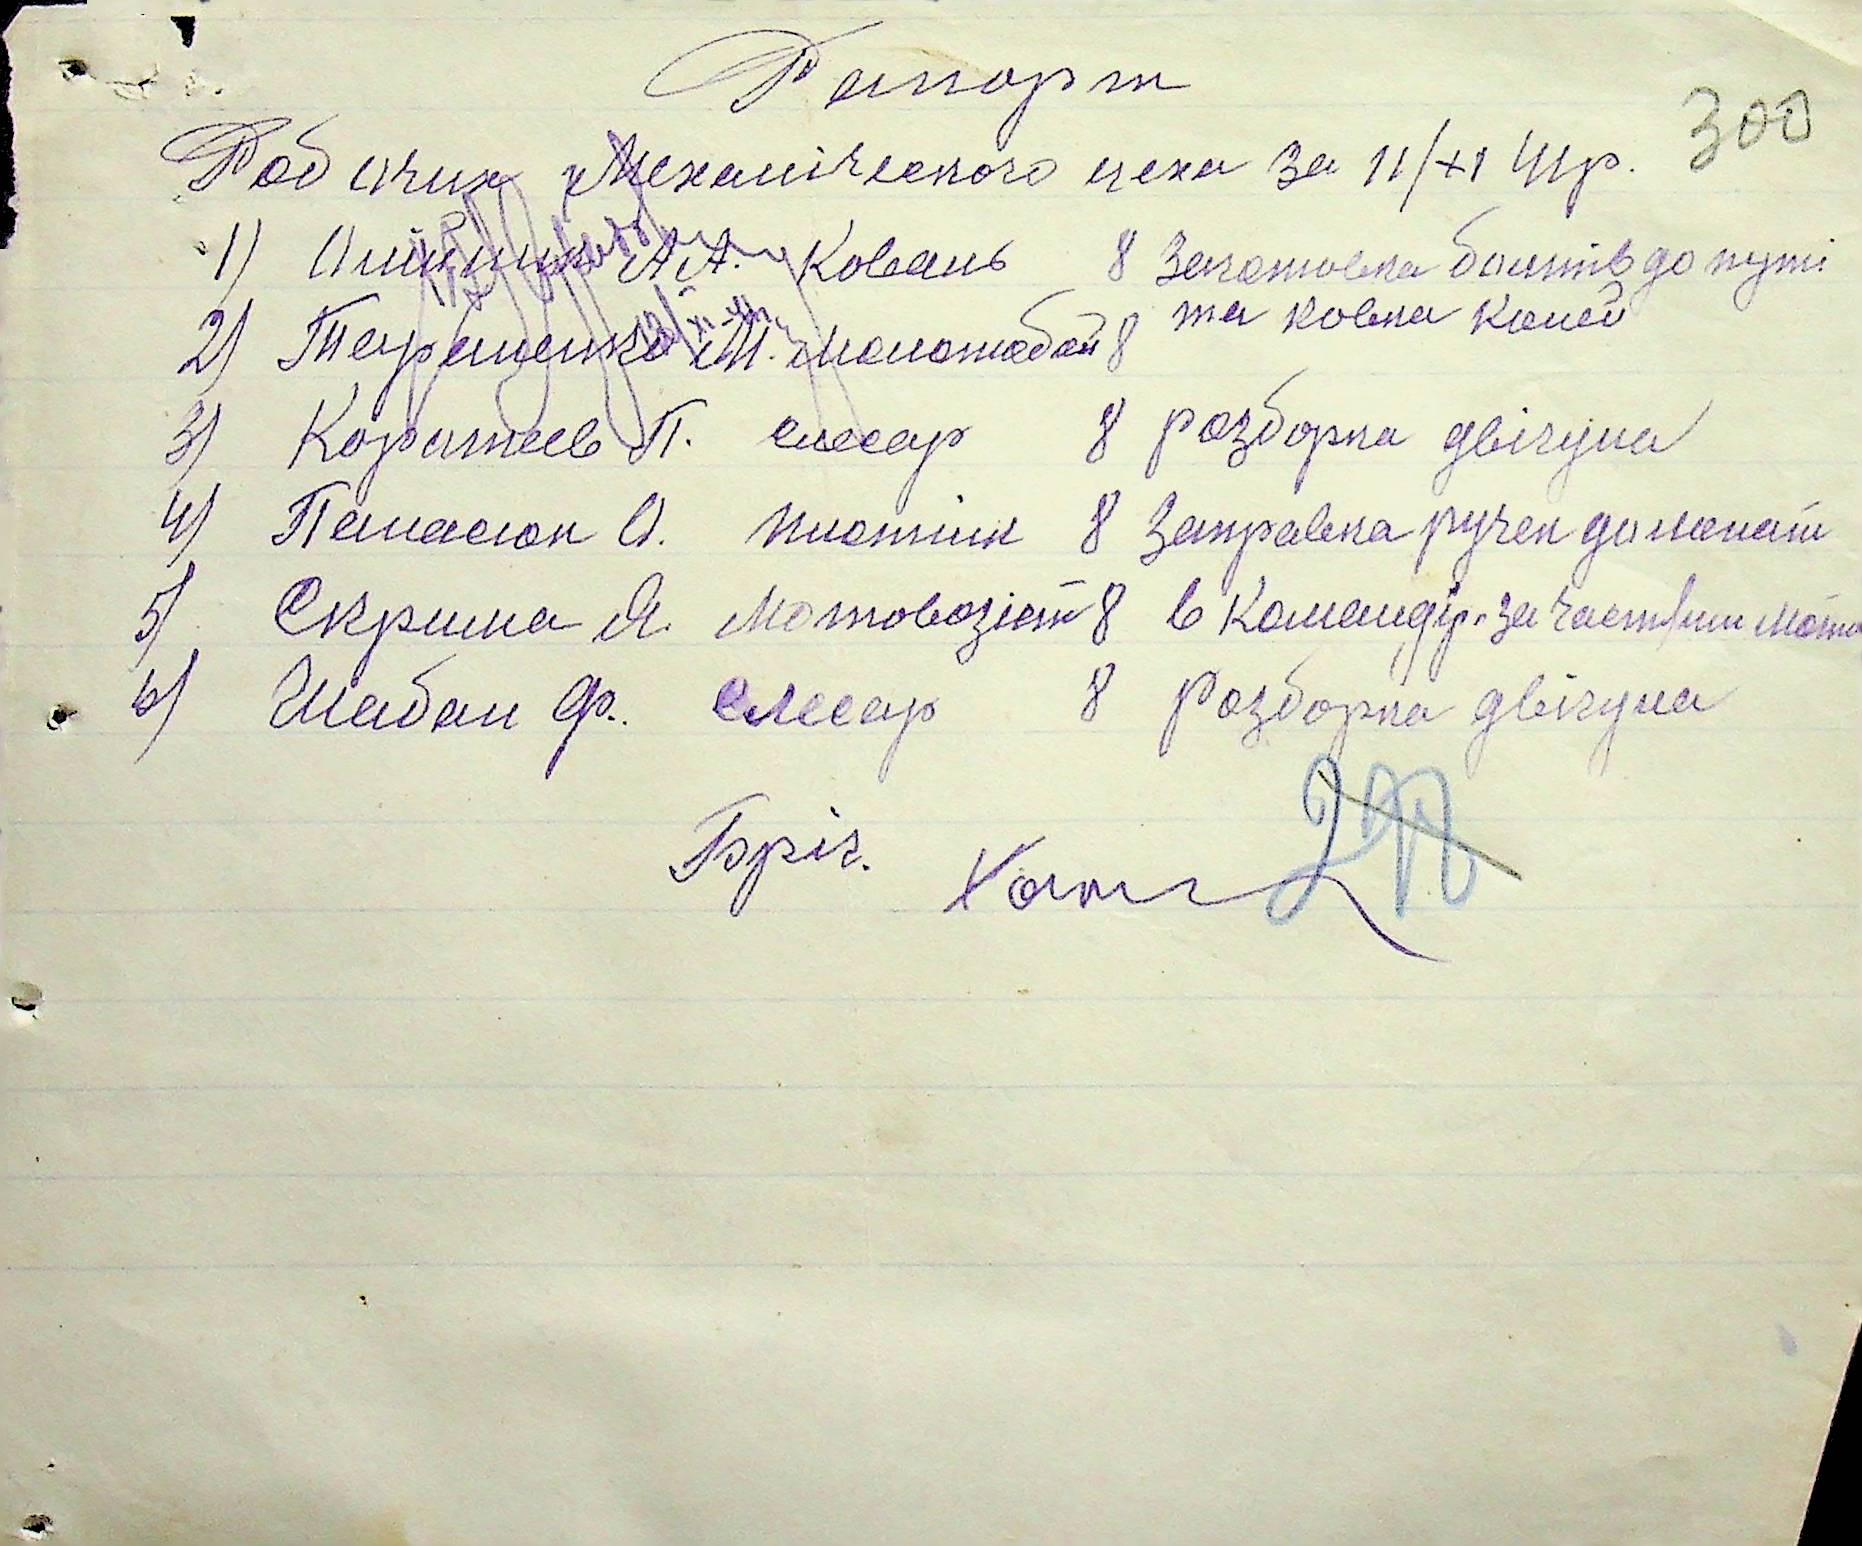 Рапорт
300
Робочих Механіческого цеха за 11/XI 41р.
1) Олійник А.А. Коваль 8 Заготовка болтів до путі
та ковка коней
2) Терещенко М. Молотобой 8
3) Коротєєв П. слесар 8 розборка двігуна
4) Панасюк О. плотнік 8 Заправка ручек до лопат
5) Скрипка Я. Мотовозіст 8 в Командір. за част
6) Шабан Ф. слесар 8 Розборка двігуна
Бріг.